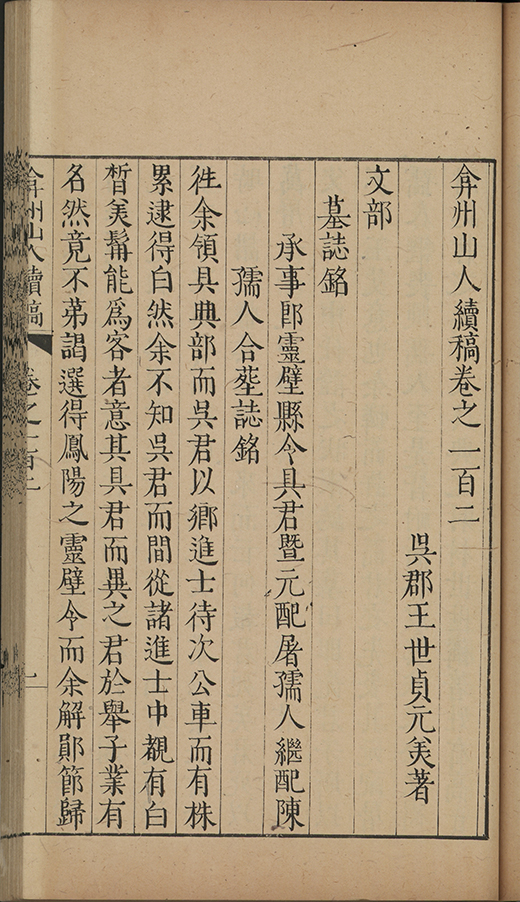 弇州山人續稿卷之一百二
吳郡王世貞元美著
文部
墓誌銘
承事郎靈壁縣令具君暨元配屠孺人繼配陳
孺人合塟誌銘
徃余領具典部而吳君以鄉進士待次公車而有株
累逮得白然余不知吳君而間從諸進士中覩有白
皙美髯能爲客者意其具君而異之君於舉子業有
名然竟不苐謁選得鳳陽之靈壁令而余解鄖節歸
弇州山人續稿 卷之一百二 一